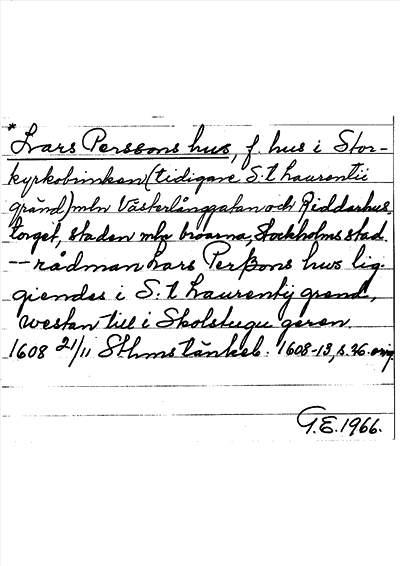 * Lars Perssons hus, f. hus i Stor-
kyrkobrinken (tidigare S:t Laurentii
gränd) mln Västerlånggatan och Riddarhus
torget, staden mln broarna, Stockholms stad
-- rådman Lars Perßons hws lig-
giendes i S:t Laurentij grend,
westan till i Skolstugu geren.
1608 21/11 Sthms tänkeb. 1608-13, s. 26. orig
G.E. 1966.